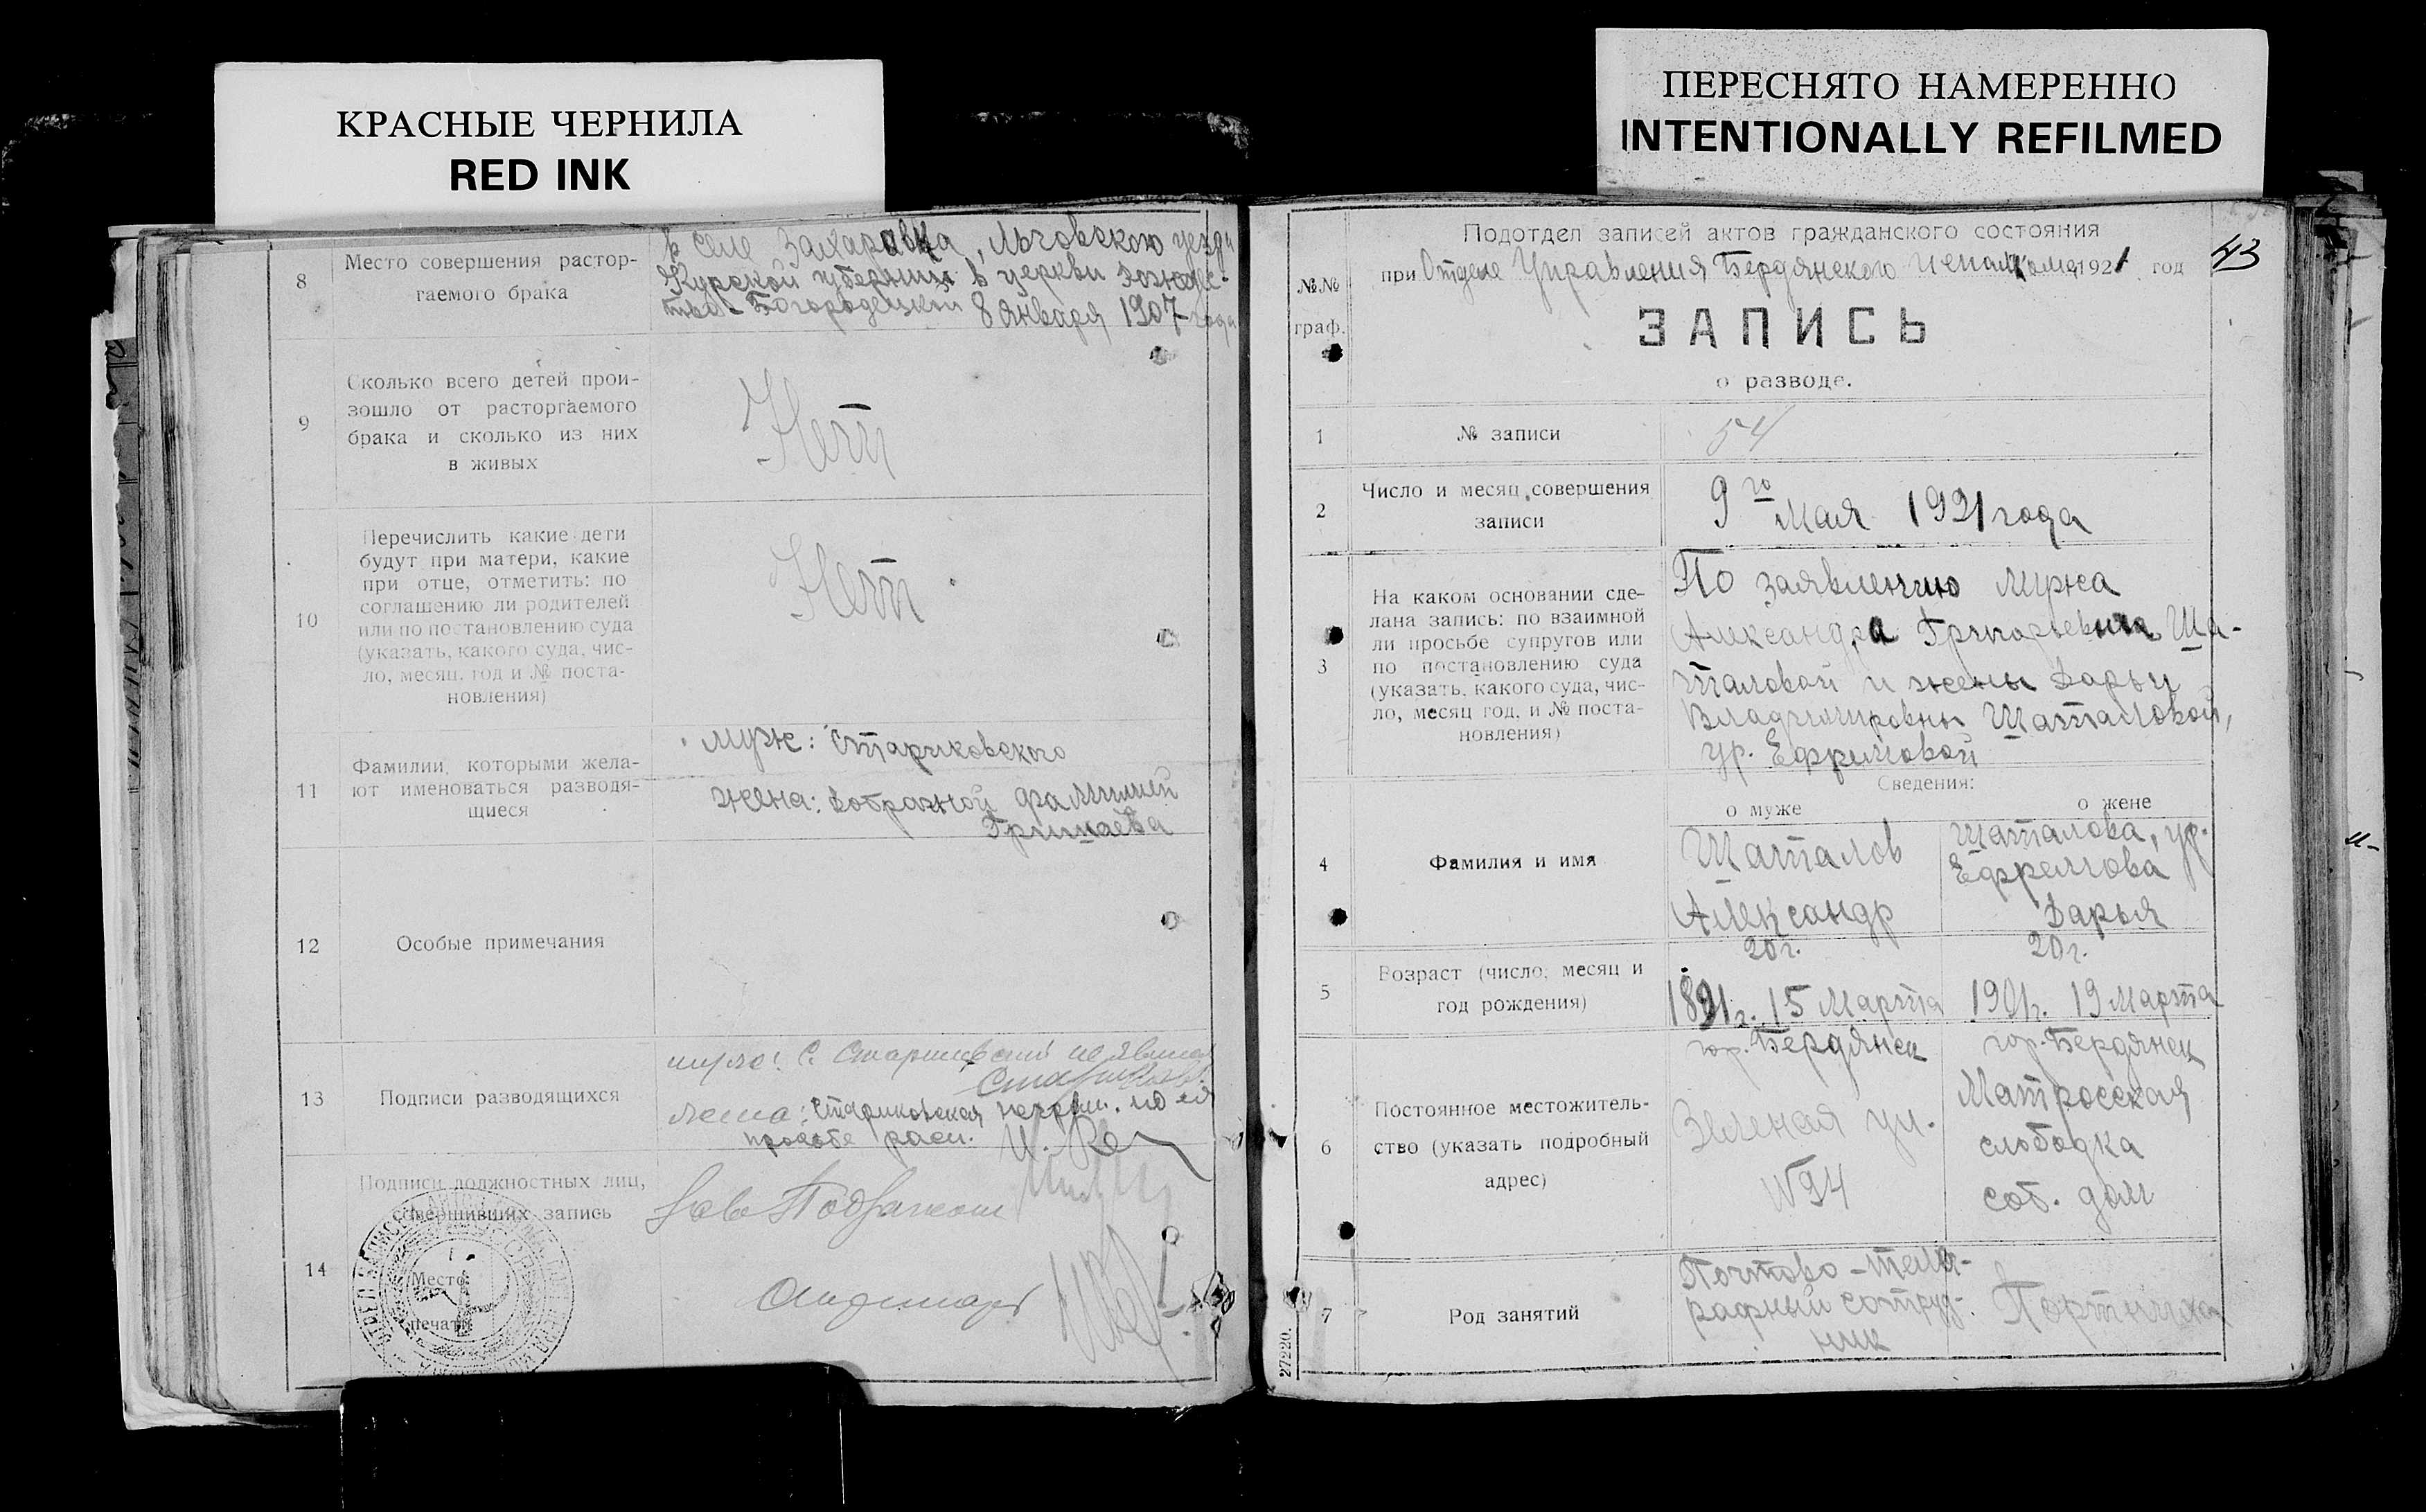 КРАСНЫЕ ЧЕРНИЛА
RED INK
ПЕРЕСНЯТО НАМЕРЕННО
INTENTIONALLY REFILMED
8
Место совершения растор-
гаемого брака
в селе Захаровка, Льговского уезда
Курской губернии в церкви
Богородецкой 8 января 1907 года
9
Сколько всего детей прои-
зошло от расторгаемого
брака и сколько из них
в живых
Нет
10
Перечислить какие дети
будут при матери, какие
при отце, отметить: по
соглашению ли родителей
или по постановлению суда
(указать, какого суда, чис-
ло, месяц, год и № поста-
новления)
Нет
11
Фамилии, которыми жела-
ют именоваться разводя-
щиеся
муж: Стариковского
жена: добрачной фамилией
12
Особые примечания
13
Подписи разводящихся
жена: Стариковская негр. по её
просьбе расп.
14
Подписи должностных лиц,
совершивших запись
Место
печати
43
№№
граф.
Подотдел записей актов гражданского состояния
при Отделе Управления Бердянского исполкома 1921 год
ЗАПИСЬ
о разводе.
1
№ записи
54
2
Число и месяц совершения
записи
9го Мая 1921 года
3
На каком основании сде-
лана запись: по взаимной
ли просьбе супругов или
по постановлению суда
(указать, какого суда, чис-
ло, месяц год, и № поста-
новления)
По заявлению мужа
Александра Григорьевича Ша-
таловой и жены Дарьи
Владимировны Шаталовой,
ур. Ефремовой
Сведения:
о муже
о жене
4
Фамилия и имя
Шаталов
Александр
Шаталова, ур.
Ефремова
Дарья
5
Возраст (число, месяц и
год рождения)
20 г.
15 Марта
20 г.
1901 г. 19 Марта
6
Постоянное местожитель-
ство (указать подробный
адрес)
гор. Бердянск
Зеленая ул.
№ 94
гор. Бердянск
Матросская
слободка
соб. дом
7
Род занятий
Почтово-телег-
рафный сотруд-
ник
Портниха
27220.